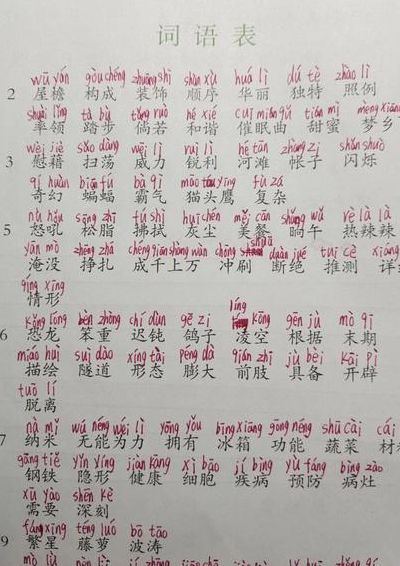 词语表
wū yán gòu chéng zhuāng shì shùn xù huá lì dú tè zhào lì
2 屋檐 构成 装饰 顺序 华丽 独特 照例
shuài lǐng tà bù tǎng ruò hé xié cuī mián qǔ tián mì mèng xiāng
率领 踏步 倘若 和谐 催眠曲 甜蜜 梦乡
wèi jiè sǎo dàng wēi lì ruì lì hé tān zhàng zi shǎn shuò
3 慰藉 扫荡 威力 锐利 河滩 帐子 闪烁
qí huàn biān fú bà qì māo tóu yīng fù zá
奇幻 蝙蝠 霸气 猫头鹰 复杂
nù hǒu sōng zhī fú shì huī chén měi cān shǎng wǔ rè là là
5 怒吼 松脂 拂拭 灰尘 美餐 晌午 热辣辣
yān mò zhēng zhá chéng qiān shàng wàn chōng shuā duàn jué tuī cè xiáng
淹没 挣扎 成千上万 冲刷 断绝 推测 详
qíng xíng
情形
kǒng lóng bèn zhòng chí dùn gē zi líng kōng gēn jù mò qī
6 恐龙 笨重 迟钝 鸽子 凌空 根据 末期
miáo huì suì dào xíng tài péng dà qián zhī jù bèi kāi pì
描绘 隧道 形态 膨大 前肢 具备 开辟
tuō lí
脱离
nà mǐ wú néng wéi lì yōng yǒu bīng xiāng gōng néng shū cài cái
7 纳米 无能为力 拥有 冰箱 功能 蔬菜 材
gāng tiě yǐn xíng jiàn kāng xì bāo jí bìng yù fáng bìng zào
钢铁 隐形 健康 细胞 疾病 预防 病灶
xū yào shēn kè
需要 深刻
fán xīng téng luó bō tāo
9 繁星 藤萝 波涛